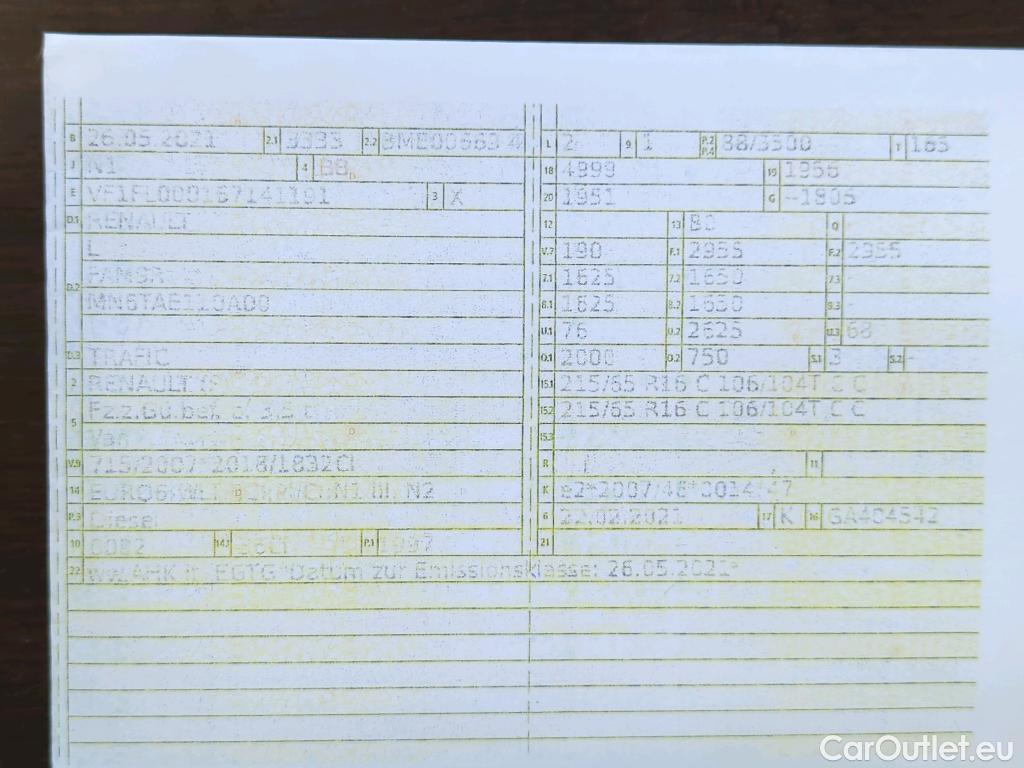 B 26.05.2021 2.1 3333 2.2 BME00663 4
J N1 4 BB
E 3 X
D.1 RENAULT
L
D.2
MN6TAE110A00
D.3 TRAFIC
2 RENAULT (F)
5 Fz.z.Gü.bef. b. 3,5 t
Van
V.9 715/2007*2018/1832CI
14 EURO6 N1 III, N2
P.3 Diesel
10 0002 14.1 36CI P.1 1997
L 2 9 1 P.2 P.4 88/3500 T 165
18 4999 19 1956
20 1951 G --1905
12 13 80 Q
V.7 190 F.1 2955 F.2 2955
7.1 1625 7.2 1650 7.3
8.1 1625 8.2 1650 8.3 -
U.1 76 U.2 2625 U.3 68
O.1 2000 O.2 750 S.1 3 S.2 -
15.1 215/65 R16 C 106/104T C C
15.2 215/65 R16 C 106/104T C C
15.3
R 11
K e2*2007/46*0014*47
6 22.02.2021 17 K 16 GA404542
21
22 ww.AHK lt. EGTG*Datum zur Emissionsklasse: 26.05.2021*
CarOutlet.eu